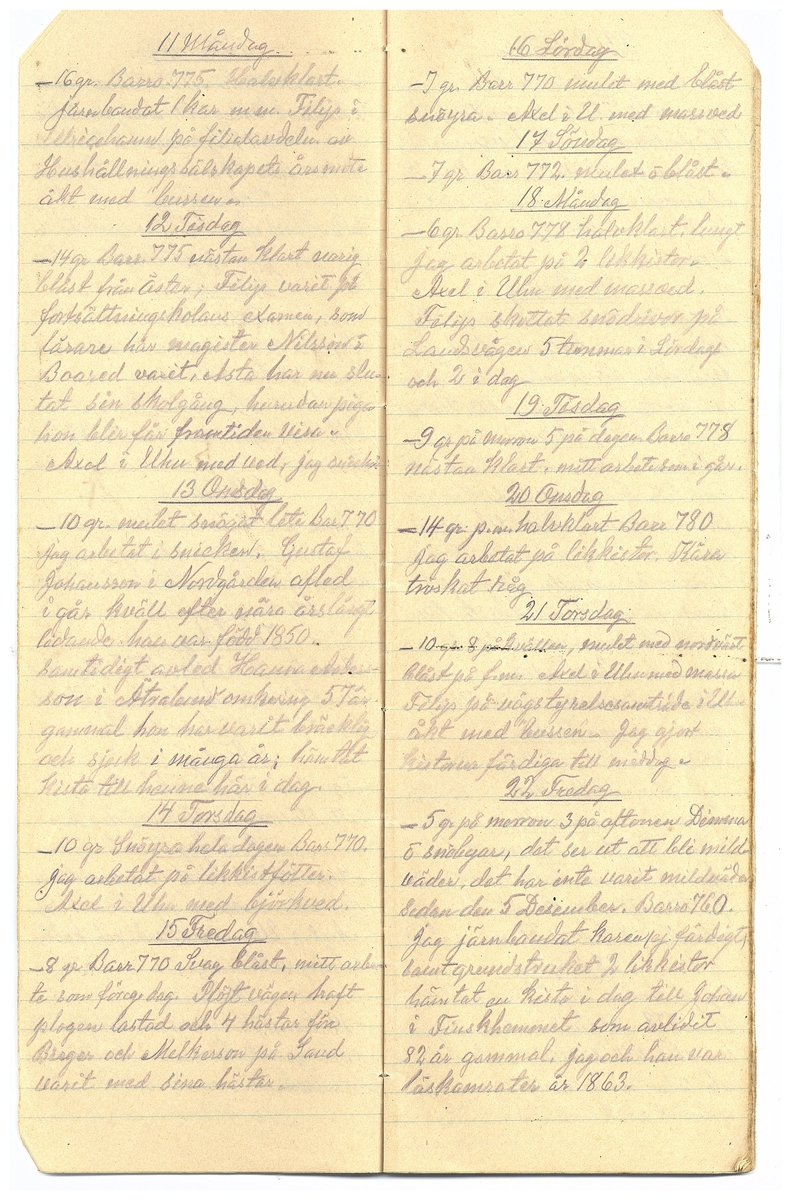 11 Måndag
-16 gr. Barro 775 Halvklart.
järnbandat 1 kar m.m. Filip i
Ulricehamn på filialavdeln. av
Hushållningssälskapets årsmöte
åkt med bussen.
12 Tisdag
-14 gr Barr. 775 nästan klart varig
blåst från Öster; Filip varit på
fortsättningskolans examen, som
lärare har magister Nilsson i
Boared varit, Asta har nu slu-
tat sin skolgång, hurudan
tion blir får framtiden visa.
Axel i Uhn med ved, jag
13 Onsdag
-10 gr. mulet snögat lite Bar 770
jag arbetat i snicken. Gustaf
Johansson i Nordgården afled
i går kväll efter nära årslångt
lidande han var född 1850.
samtidigt avled Hanna Anders-
son i Ätralund omkring 57 år
gammal hon har varit bräcklig
och sjuk i många år; hämtat
kista till henne här i dag.
14 Torsdag
-10 gr Snöyra hela dagen Barr 770.
jag arbetat på likkistfötter.
Axel i Uhn med björkved.
15 Fredag
-8 gr Barr 770 Svag blåst, mitt arbe-
te som föreg dag. Plöjt vägen haft
plogen lastad och 4 hästar för
Birger och Melkerson på Sand
varit med sina hästar.
16 Lördag
-7 gr. Barr 770 mulet med blåst
snöyra. Axel i U. med massved
17 Söndag
-7 gr Barr 772. mulet o blåst.
18 Måndag
-6 gr. Barro 778 halvklart, lungt
jag arbetat på 2 likkistor.
Axel i Uhn med massved.
Filip skottat snödrivor på
Landsvägen 5 timmar i Lördags
och 2 i dag
19 Tisdag
-9 gr på morron 5 på dagen Barro 778
nästan klart. mitt arbete som i går.
20 Onsdag
-14 gr. halvklart Barr 780
jag arbetat på likkistor. Kära
tröskat Råg
21 Torsdag
-10 gr 8 på kvällen, mulet med nordväst
blåst på f.m. Axel i Uhn med massa
Filip på vägstyrelsesamträde i Ul-
åkt med bussen. Jag gjort
kistorna färdiga till middag.
22 Fredag
-5 gr på morron 3 på aftonen Dimma
o snöbyar, det ser ut att bli mild-
väder, det har inte varit mildväder
sedan den 5 Desember. Barro 760.
Jag järnbandat karen (ej färdigt)
samt grundstruket 2 likkistor
hämtat en kista i dag till Johan
i Finskhemmet som avlidit
82 år gammal. jag och han var
läskamrater år 1863.